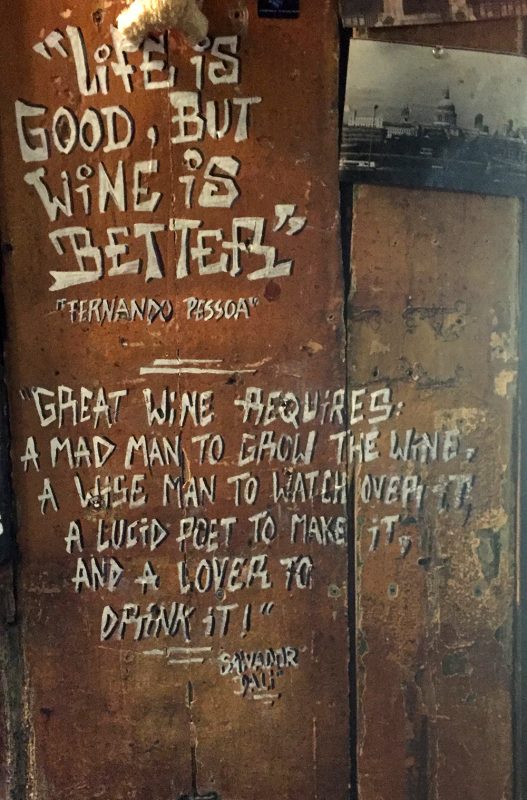 "LiFE iS
GOOD, BUT
WiNE iS
BETTER"
"FERNANDO PESSOA"
"GREAT WiNE REQUiRES:
A MAD MAN TO GROW THE WiNE,
A WISE MAN TO WATCH OVER iT,
A LUCiD POET TO MAKE iT,
AND A LOVER TO
DRiNK iT!"
SALVADOR
DALi"